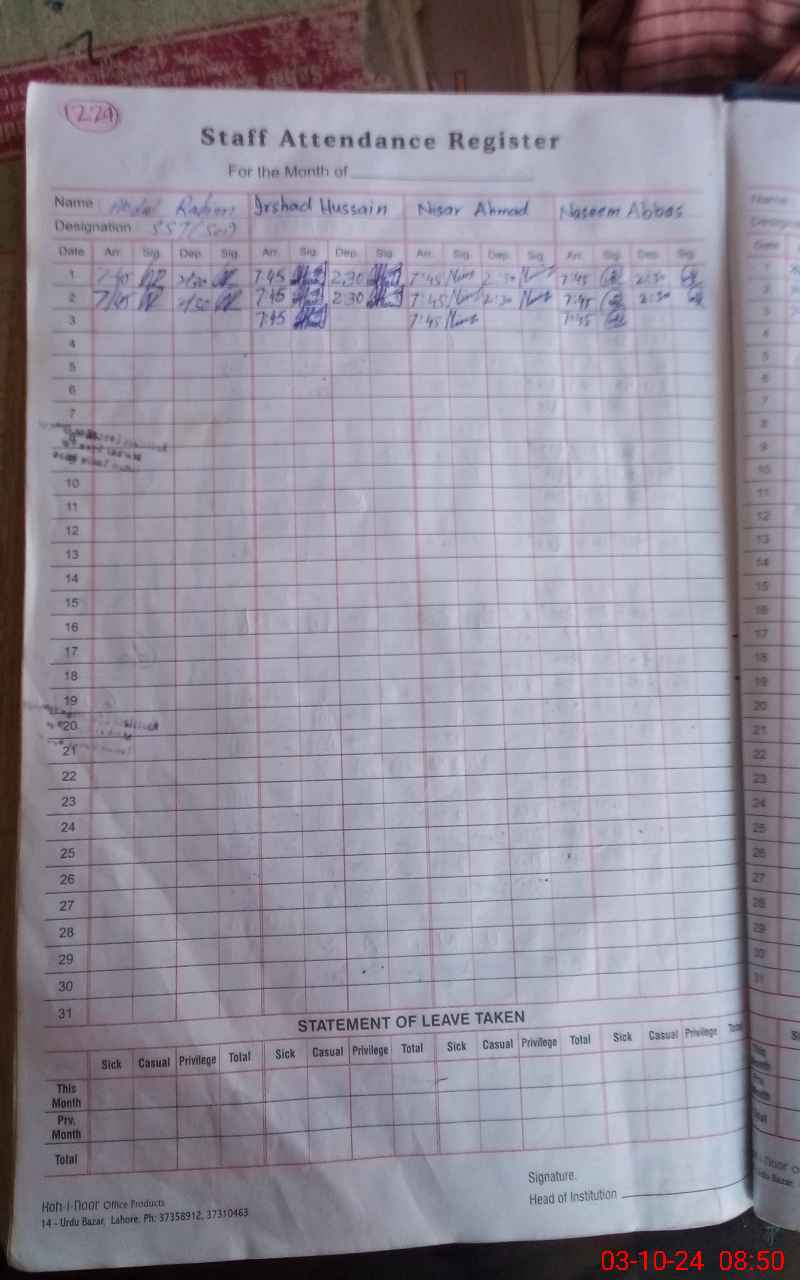 224
Staff Attendance Register
For the Month of
Name Abdul Rahim Irshad Hussain Nisar Ahmad Naseem Abbas
Designation SST/
Date Arr. Sig. Dep. Sig. Arr. Sig. Dep. Sig. Arr. Sig. Dep. Sig. Arr. Sig. Dep. Sig.
1 7:45 2:30 7:45 2:30 7:45 2:30 7:45 2:30
2 7:45 2:30 7:45 2:30 7:45 2:30 7:45 2:30
3 7:45 7:45 7:45
4
5
6
7
10
11
12
13
14
15
16
17
18
19
20
21
22
23
24
25
26
27
28
29
30
31
STATEMENT OF LEAVE TAKEN
Sick Casual Privilege Total Sick Casual Privilege Total Sick Casual Privilege Total Sick Casual Privilege Total
This Month
Prv. Month
Total
Signature.
Head of Institution
Koh-i-Noor Office Products
14 - Urdu Bazar, Lahore. Ph: 37358912, 37310463
03-10-24 08:50